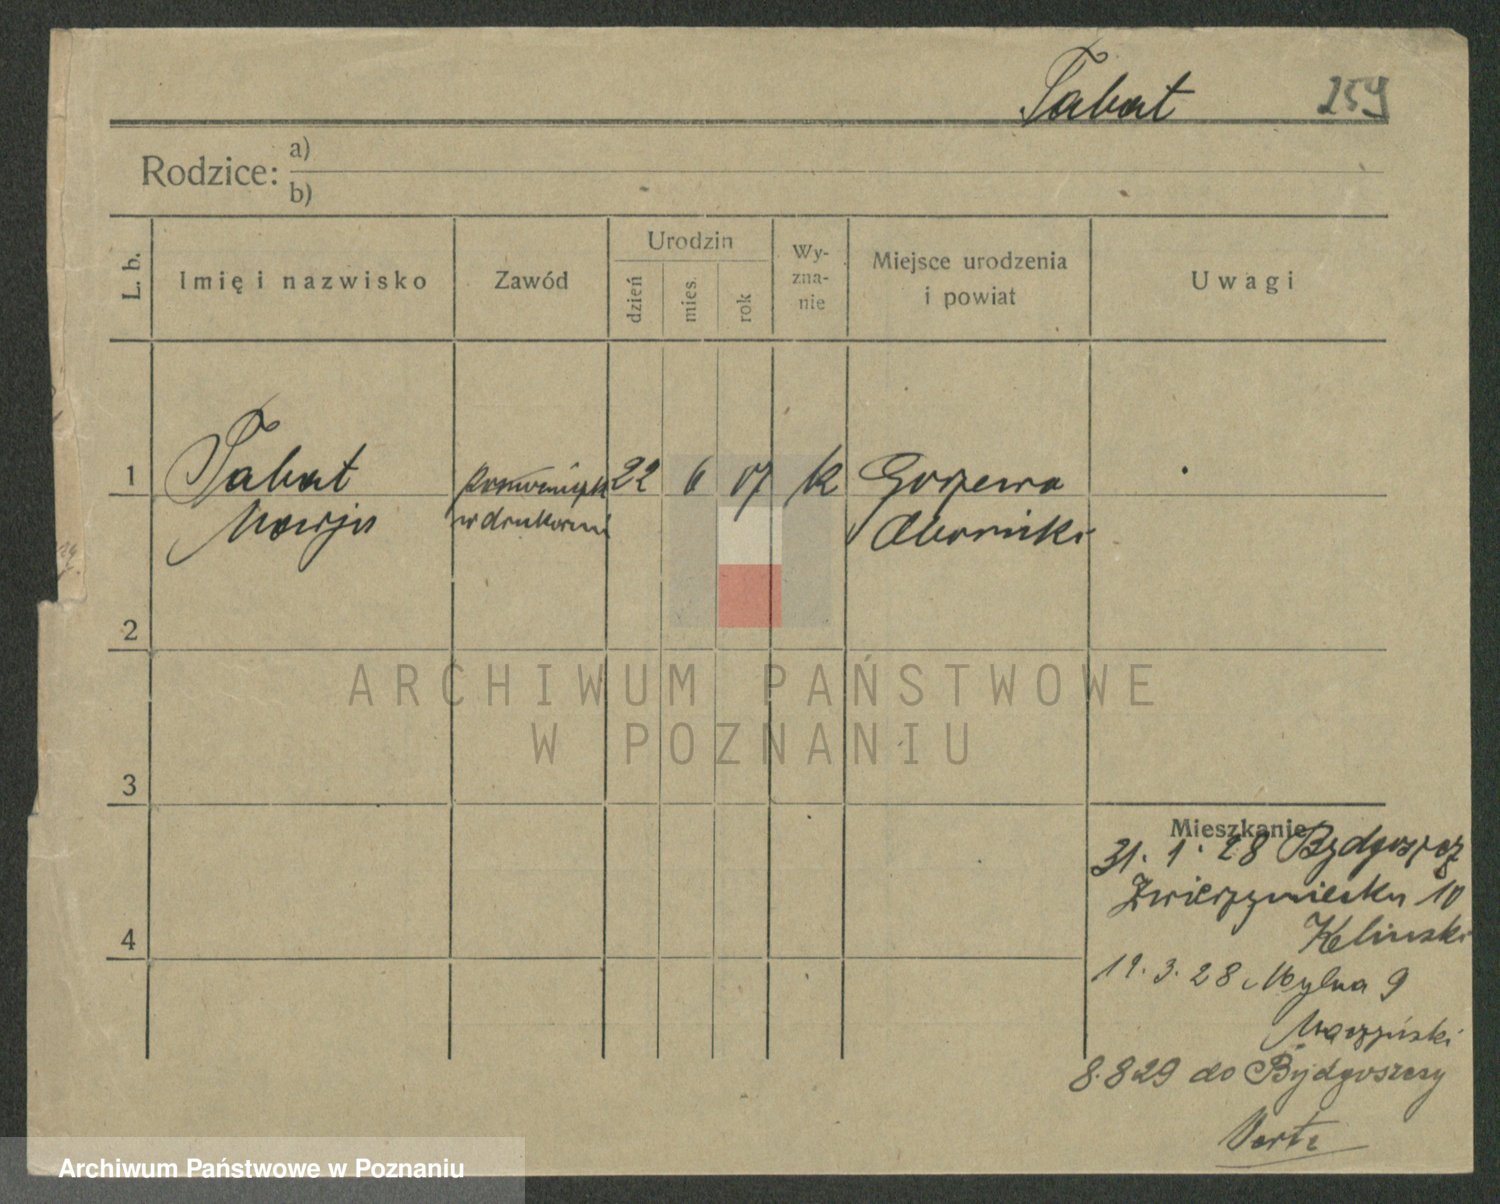 Tabat 259
Rodzice: a)
b)
L. b.
Imię i nazwisko
Zawód
Urodzin
dzień
mies.
rok
Wy-
zna-
nie
Miejsce urodzenia
i powiat
Uwagi
1 Tabat 22 6 07 k Gorzewo
Marja w drukarni Oborniki
2
ARCHIWUM PAŃSTWOWE
W POZNANIU
3
Mieszkanie
31. 1. 28 Bydgoszcz
Zwierzyniecka 10
Kelinski
4
19. 3. 28 Mylna 9
8.8 29 do Bydgoszczy
Verte
Archiwum Państwowe w Poznaniu